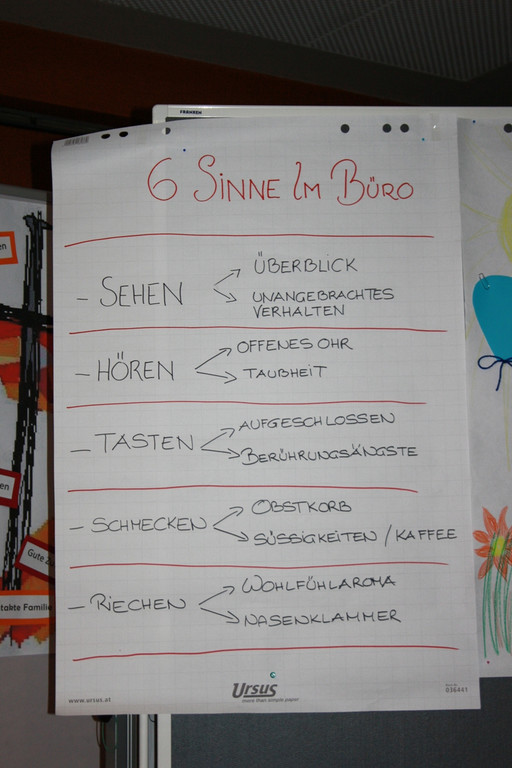 FRANKEN
6 SINNE IM BÜRO
- SEHEN
ÜBERBLICK
UNANGEBRACHTES
VERHALTEN
- HÖREN
OFFENES OHR
TAUBHEIT
- TASTEN
AUFGESCHLOSSEN
BERÜHRUNGSÄNGSTE
- SCHMECKEN
OBSTKORB
SÜSSIGKEITEN / KAFFEE
- RIECHEN
WOHLFÜHLAROMA
NASENKLAMMER
www.ursus.at
URSUS
more than simple paper
036441
en
en
Gute Z
takte Familie